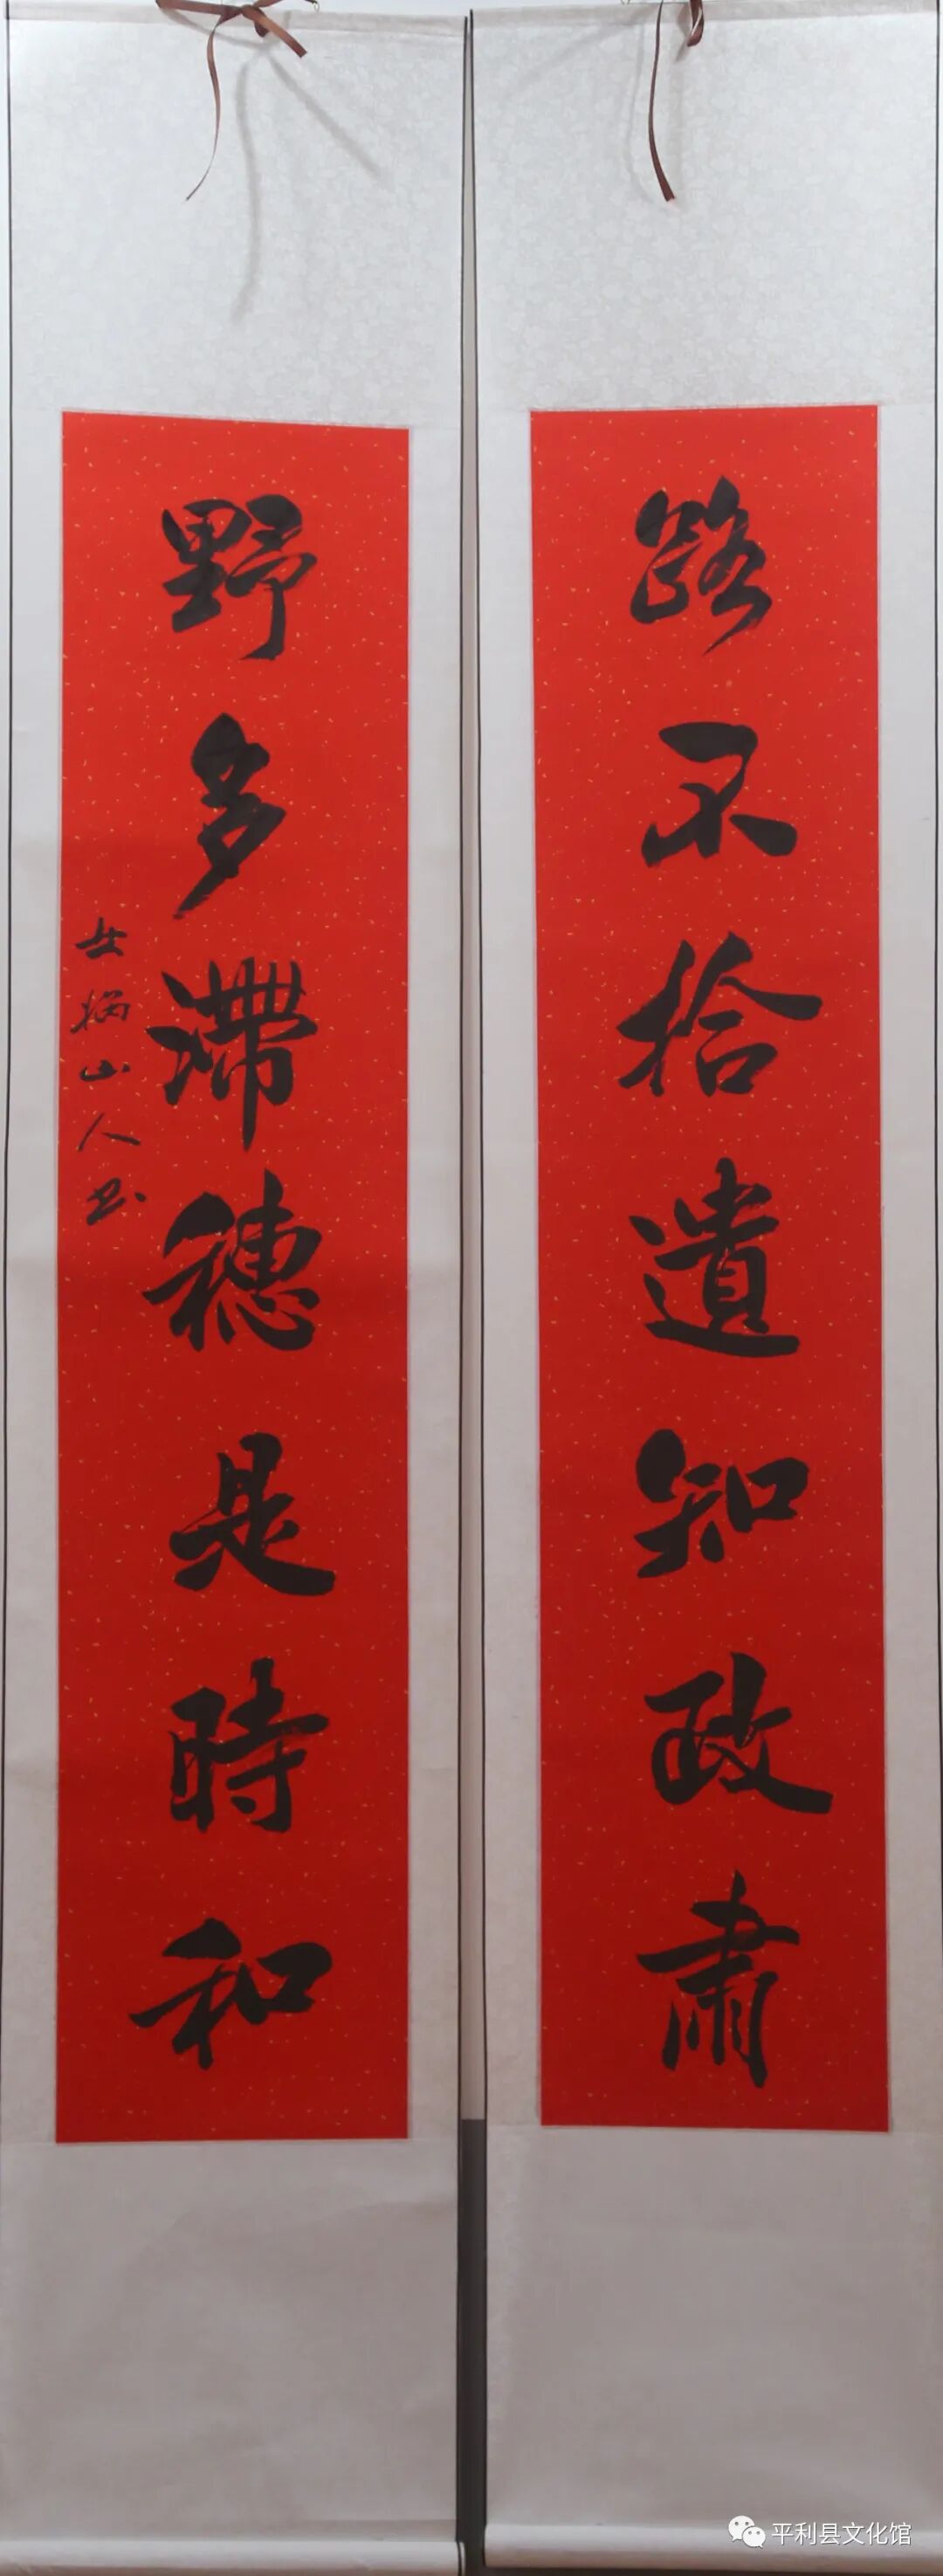 路不拾遺知政肅
野多滯穗是時和
女媧山人书
平利县文化馆